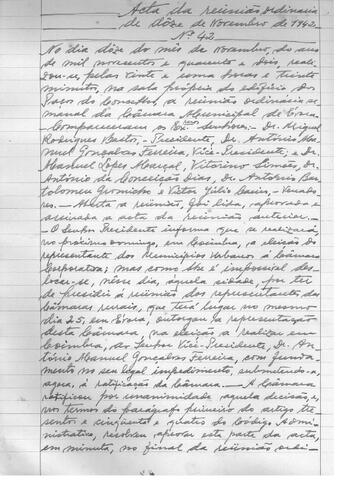 Acta da reunião ordinária
de dôze de Novembro de 1942.
Nº 42
No dia dôze do mês de Novembro, do ano
de mil novecentos e quarenta e dois, reali-
zou-se, pelas vinte e uma horas e trinta
minutos, na sala própria do edifício dos
Paços do Concelho, a reunião ordinária se-
manal da Câmara Municipal de Évora.
— Compareceram os Exmos Senhores: — Dr. Miguel
Rodrigues Bastos, — Presidente, Dr. António Ma-
nuel Gonçalves Ferreira, Vice-Presidente; e Dr.
Manuel Lopes Marçal, Vitorino Simões, Dr.
António da Conceição Dias, Dr. António Bar-
tolomeu Gromicho e Victor Júlio — Vereado-
res. — Aberta a reunião, foi lida, aprovada e
assinada a acta da reunião anterior. —
O Senhor Presidente informa que se realizará,
no próximo domingo, em Coimbra, a eleição do
representante dos Municípios Urbanos à Câmara
Corporativa; mas como lhe é impossível des-
locar-se, nesse dia, àquela cidade, por ter
de presidir à reunião dos representantes das
Câmaras rurais, que terá lugar no mesmo
dia 25, em Évora, outorgou a representação
desta Câmara, na eleição a realizar em
Coimbra, ao Senhor Vice-Presidente, Dr. An-
tónio Manuel Gonçalves Ferreira, com funda-
mento no seu legal impedimento, submetendo-a,
agora, à ratificação da Câmara. — A Câmara
ratificou por unanimidade aquela decisão, e,
nos termos do parágrafo primeiro do artigo tre-
sentos e cinqüenta e quatro do Código Admi-
nistrativo, resolveu aprovar esta parte da acta,
em minuta, no final da reunião.